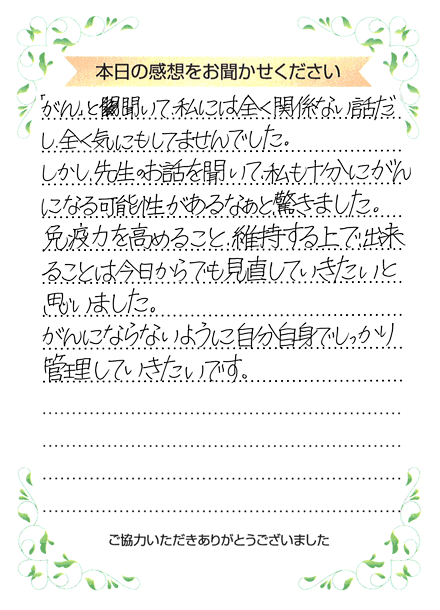 本日の感想をお聞かせください
「がん」と聞いて、私には全く関係ない話だ
し、全く気にもしてませんでした。
しかし、先生のお話を聞いて、私も十分にがん
になる可能性があるなぁと驚きました。
免疫力を高めること、維持する上で出来
ることは今日からでも見直していきたいと
思いました。
がんにならないように自分自身でしっかり
管理していきたいです。
ご協力いただきありがとうございました